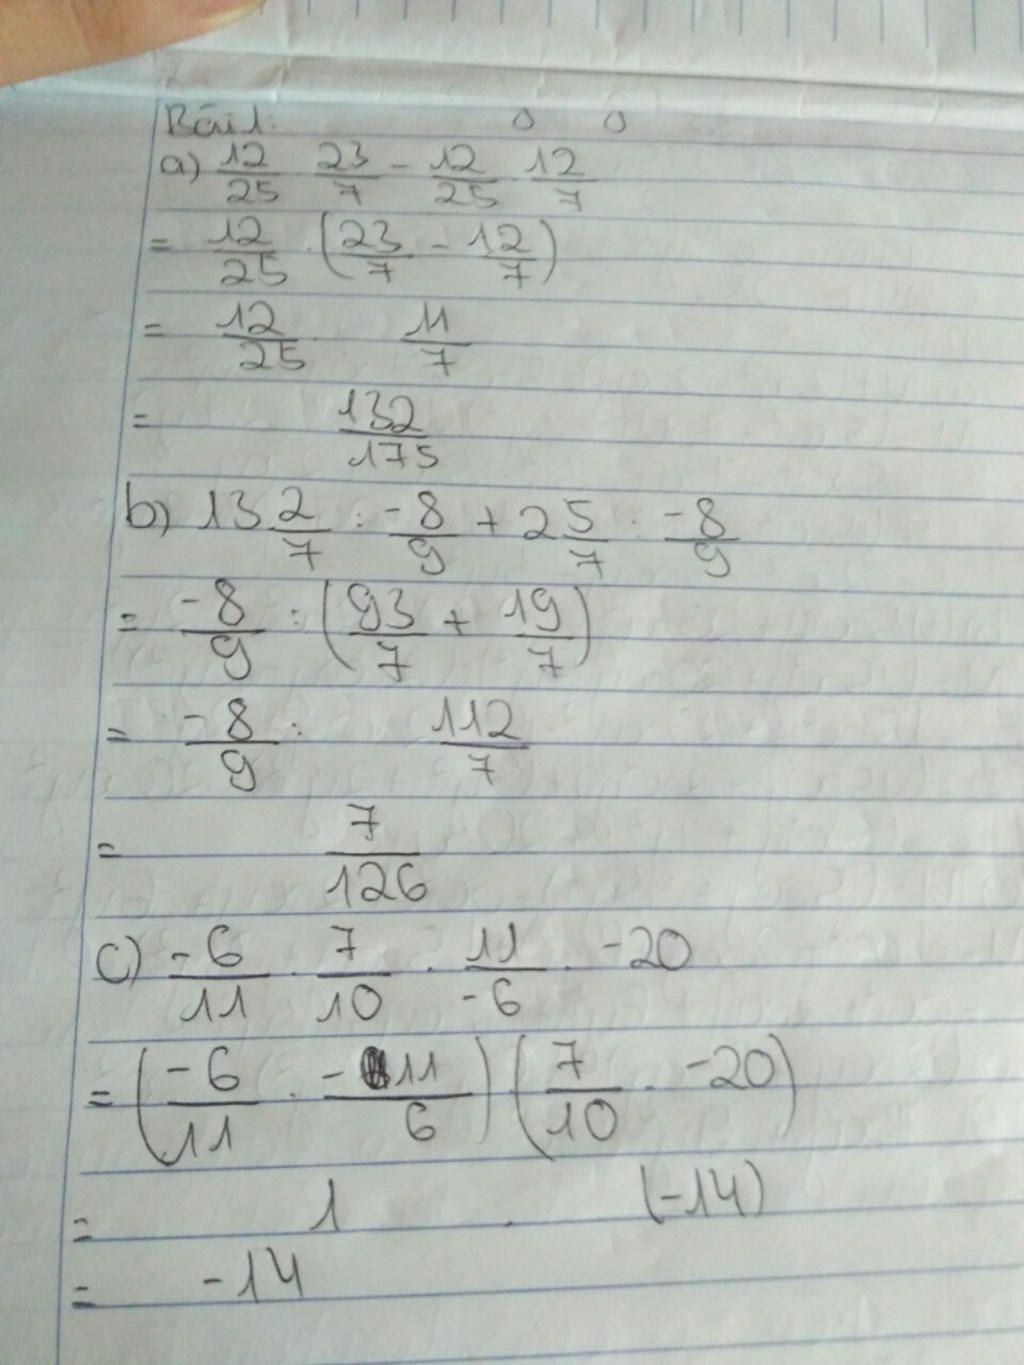 Bài 1.
a) 12/25 . 23/7 - 12/25 . 12/7
= 12/25 . (23/7 - 12/7)
= 12/25 . 11/7
= 132/175
b) 13 2/7 : -8/9 + 2 5/7 : -8/9
= -8/9 : (93/7 + 19/7)
= -8/9 : 112/7
= 7/126
c) -6/11 . 7/10 . 11/-6 . -20
= (-6/11 . -11/6) (7/10 . -20)
= 1 . (-14)
= -14